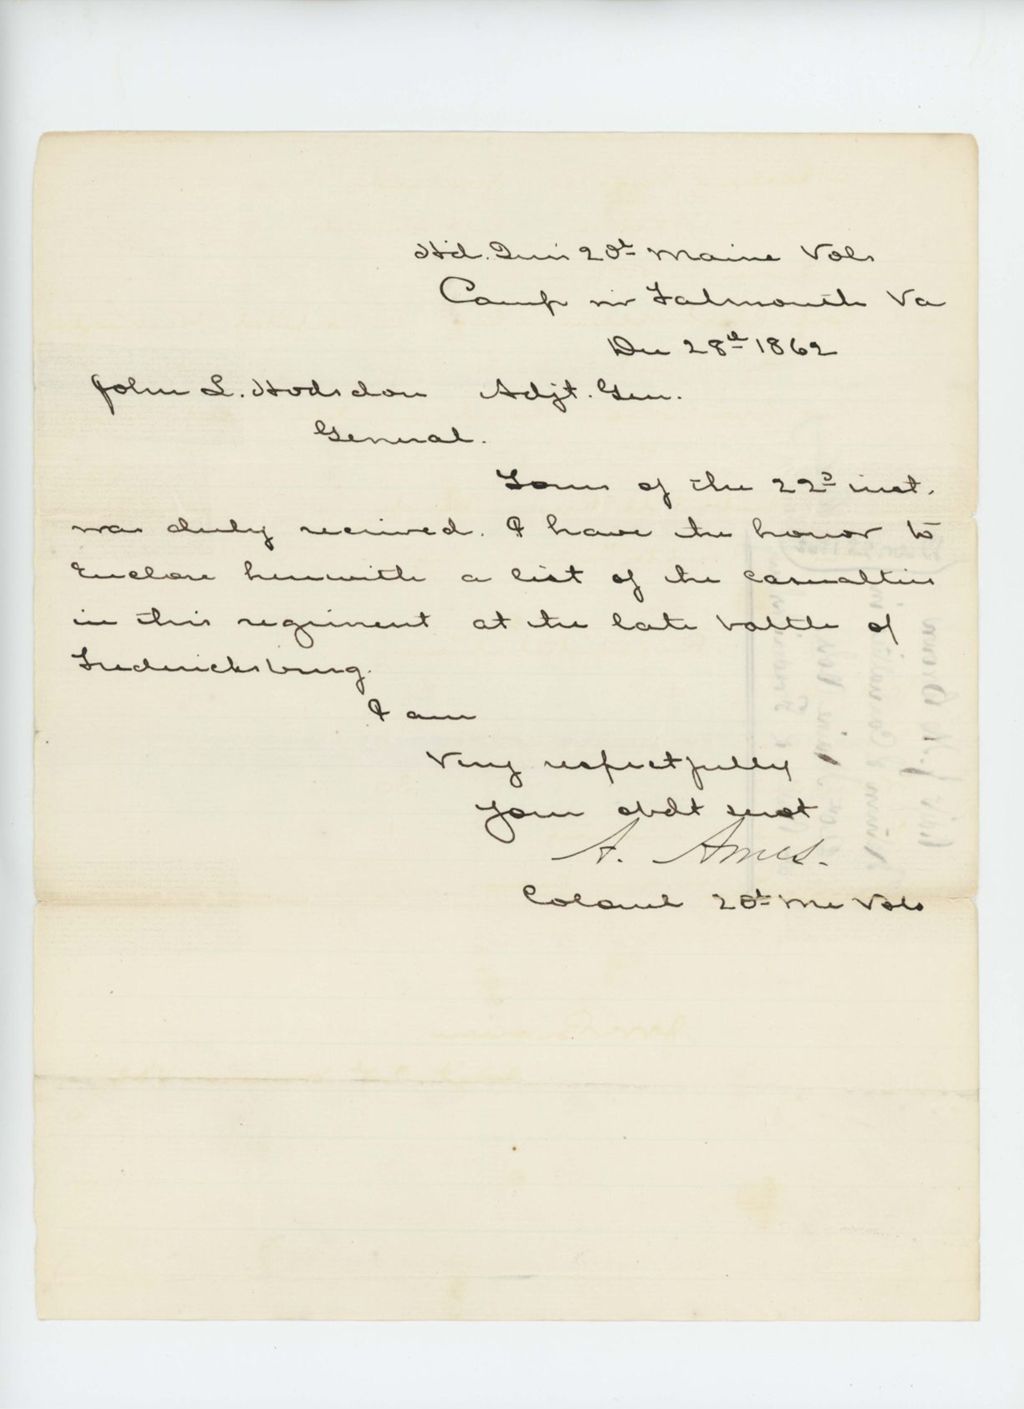 Hd. Qurs 20th Maine Vols
Camp nr Falmouth Va
Dec 28th 1862
John L. Hodsdon Adjt. Gen.
General.
Yours of the 22d inst.
was duly received. I have the honor to
Enclose herewith a list of the casualties
in this regiment at the late battle of
Fredericksburg.
I am
Very respectfully
Your obdt servt
A. Ames.
Colonel 20th Me Vols